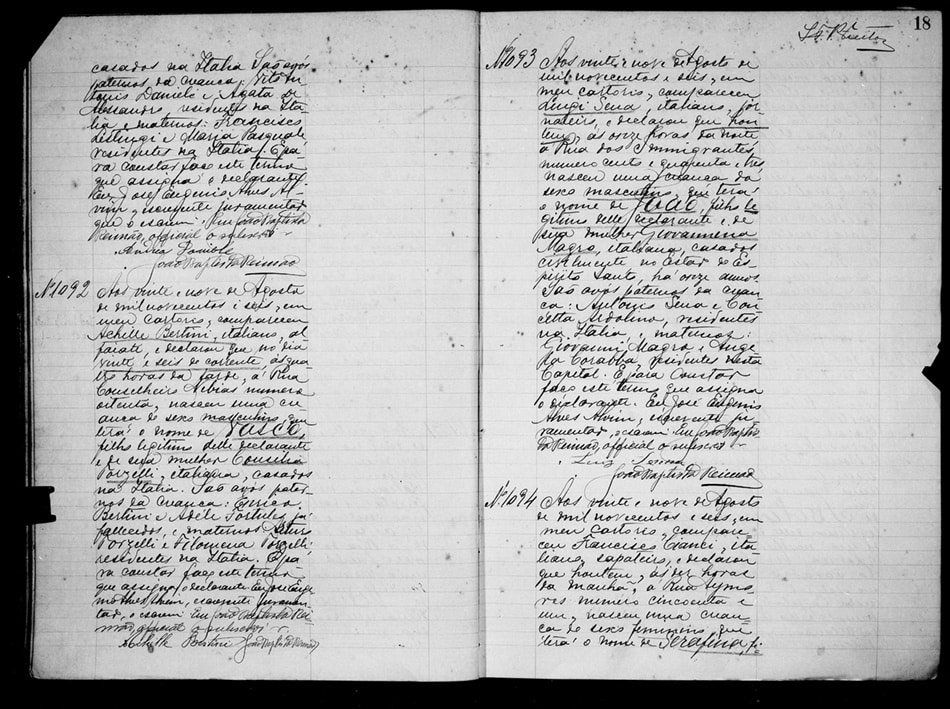 casados na Italia São avós
paternos da creança: Vito An
Daniele e Agata De
Alessandro, residentes na Ita
lia e maternos: Francisco
Listingi e Maria Pasquale
residentes na Italia. E pa
ra constar faço este termo
que assigna o declarante.
Eu, José Eugenio Alves Al
vim, escrevente juramentado
que o escrevi. Eu João Baptista
Reimão, official o subscrevi
Andrea Daniele
João Baptista Reimão
Nº 1092 Aos vinte e nove de Agosto
de mil novecentos e seis, em
meu cartorio, compareceu
Achille Bertini, italiano, al
faiate, e declarou que no dia
vinte e seis do corrente, ás qua
tro horas da tarde, á Rua
Conselheiro Nebias numero
oitenta, nasceu uma cre
ança do sexo masculino, que
terá o nome de
filho legitimo delle declarante
e de sua mulher Consilia
Porzelli, italiana, casados
na Italia. São avós pater
nos da creança: Enrico
Bertini e Adele Fortule, já
fallecidos, e maternos
Porzelli e Filomena Porzelli,
residentes na Italia. E pa
ra constar faço este termo
que assigna o declarante. Eu José Euge
nio Alves Alvim, escrevente juramen
tado, o escrevi. Eu João Baptista Rei
mão, official o subscrevi
Achille Bertini João Baptista Reimão
18
Nº 1093 Aos vinte e nove de Agosto de
mil novecentos e seis, em
meu cartorio, compareceu
Luigi Sena, italiano, jor
naleiro, e declarou que hon
tem, ás onze horas da noite
á Rua dos Immigrantes,
numero cento e quarenta e tres
nasceu uma creança do
sexo masculino, que terá
o nome de filho le
gitimo delle declarante, e de
sua mulher Giovannina
Magro, italiana, casados
civilmente no Estado do Es
pirito Santo, ha onze annos.
São avós paternos da crean
ça: Antonio Sena e Con
cetta Ardolino, residentes
na Italia, e maternos
Giovanni Magro, Ange
la Corabba, residentes nesta
Capital. E para constar
faço este termo que assigna
o declarante. Eu José Eugenio
Alves Alvim, escrevente ju
ramentado, o escrevi Eu João Baptis
ta Reimão, official o subscrevi
Luiz
João Baptista Reimão
Nº 1094 Aos vinte e nove de Agosto
de mil novecentos e seis, em
meu cartorio, compare
ceu Francisco Cianci, ita
liano, sapateiro, e declarou
que hontem, ás dez horas
da manhã, á Rua Aymo
res numero cincoenta e
um, nasceu uma crean
ça do sexo feminino, que
terá o nome de Serafina, fi-